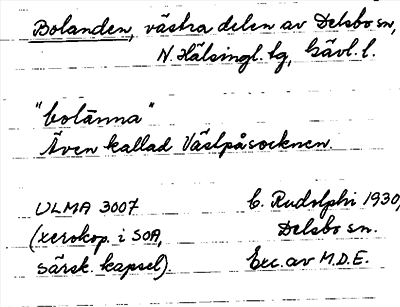 Bolanden, västra delen av Delsbo sn,
N. Hälsingl. tg, Gävl. l.
"bolänna"
Även kallad Västpåsocknen.
ULMA 3007
(xerokop. i SOA,
särsk. kapsel).
C. Rudolphi 1930,
Delsbo sn.
Exc. av M.D.E.